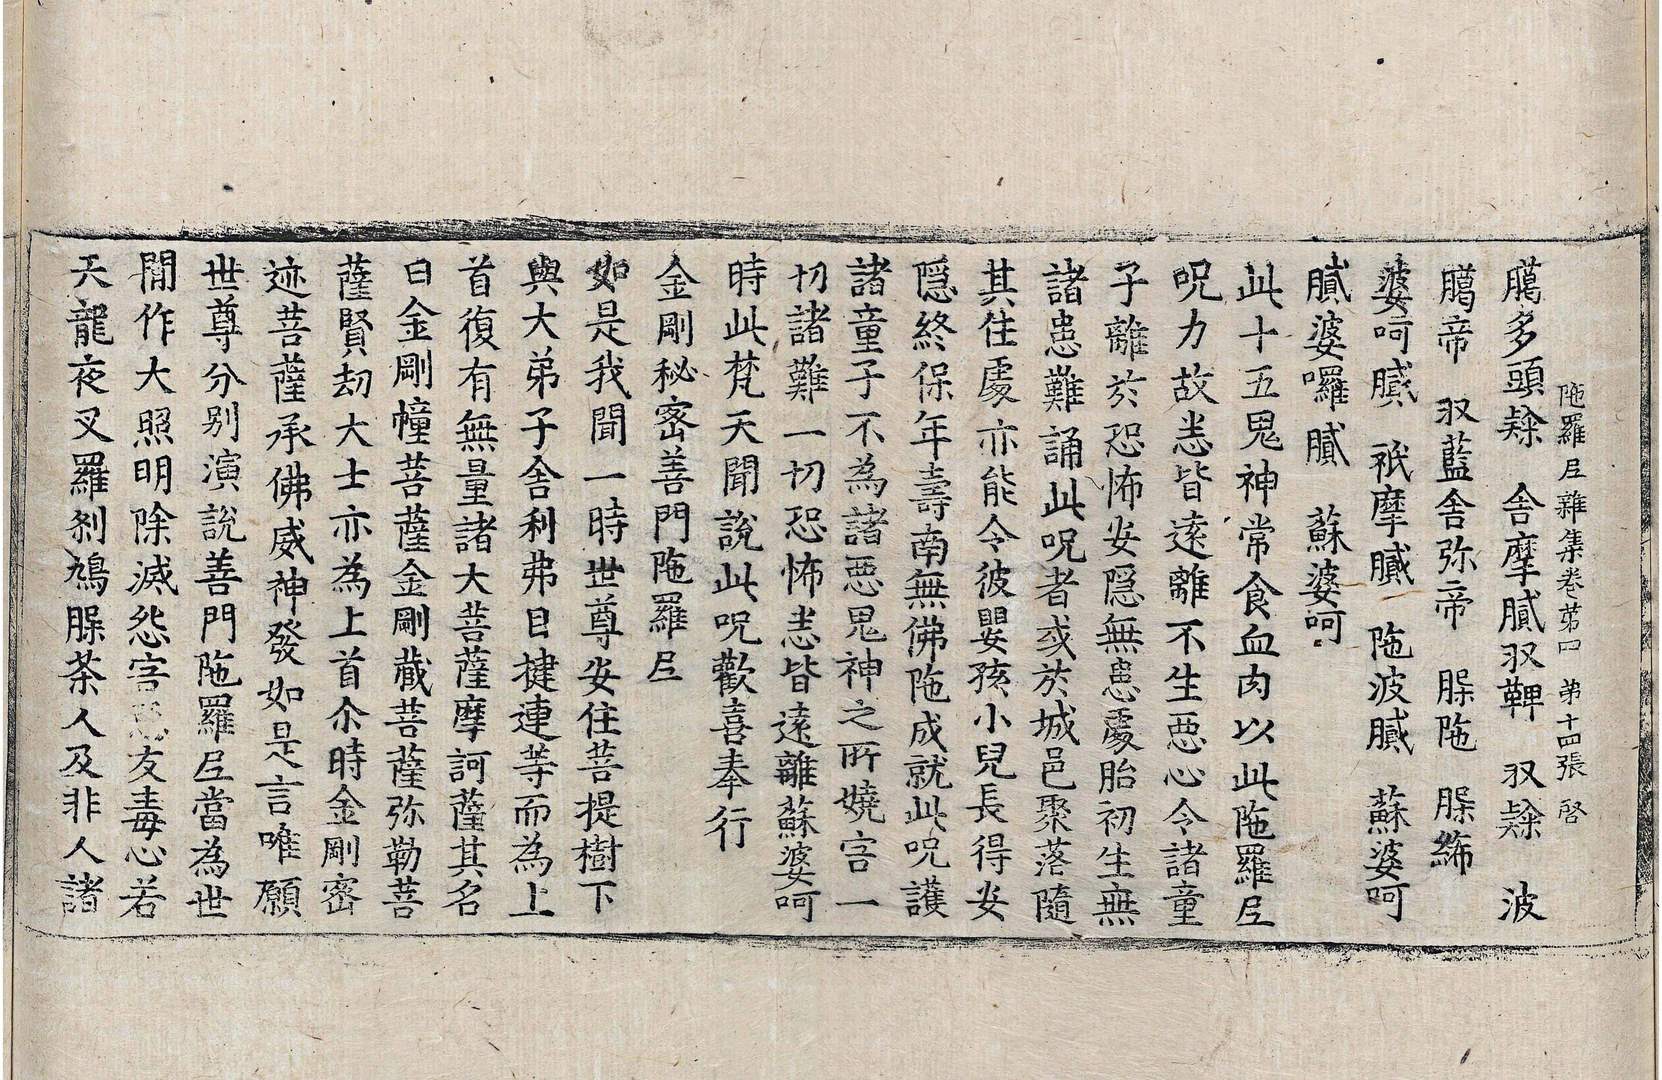 陁羅尼雜集卷苐四 苐十四張 啓
臈多頭㝹 舎摩膩㕛鞞 㕛㝹 波
臈帝 㕛藍舎弥帝 䐗陁 䐗締
婆呵膩 祇摩膩 陁波膩 蘇婆呵
膩婆囉膩 蘇婆呵
此十五鬼神常食血肉以此陁羅尼
呪力故悉皆遠離不生惡心令諸童
子離於恐怖安隱無患處胎初生無
諸患難誦此呪者或於城邑聚落隨
其住處亦能令彼嬰孩小兒長得安
隱終保年壽南無佛陁成就此呪護
諸童子不為諸惡鬼神之所嬈害一
切諸難一切恐怖悉皆遠離蘇婆呵
時此梵天聞說此呪歡喜奉行
金剛秘密善門陁羅尼
如是我聞一時世尊安住菩提樹下
與大弟子舎利弗目揵連等而為上
首復有無量諸大菩薩摩訶薩其名
曰金剛幢菩薩金剛藏菩薩弥勒菩
薩賢劫大士亦為上首尒時金剛密
迹菩薩承佛威神發如是言唯願
世尊分別演說善門陁羅尼當為世
間作大照明除滅怨害惡友毒心若
天龍夜叉羅剎鳩䐗茶人及非人諸